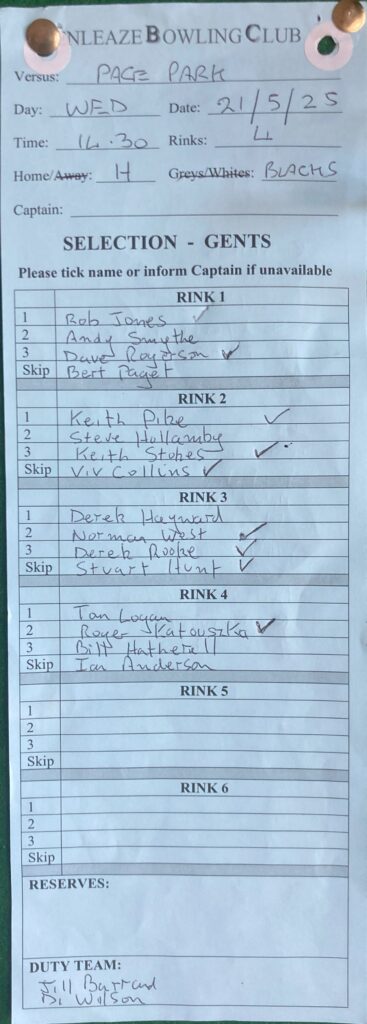 NLEAZE BOWLING CLUB
Versus: PAGE PARK
Day: WED Date: 21/5/25
Time: 14.30 Rinks: 4
Home/Away: H Greys/Whites: BLACKS
Captain:
SELECTION - GENTS
Please tick name or inform Captain if unavailable
RINK 1
1 Rob Jones ✓
2 Andy Smythe
3 Dave Rogerson ✓
Skip Bert Paget
RINK 2
1 Keith Pike ✓
2 Steve Hollamby
3 Keith Stokes ✓
Skip Viv Collins ✓
RINK 3
1 Derek Hayward
2 Norman West ✓
3 Derek Rooke ✓
Skip Stuart Hunt ✓
RINK 4
1 Logan
2 Roger Katouszka ✓
3 Bill Hatherell
Skip Ian Anderson
RINK 5
1
2
3
Skip
RINK 6
1
2
3
Skip
RESERVES:
DUTY TEAM:
Jill Barrand
Di Wilson